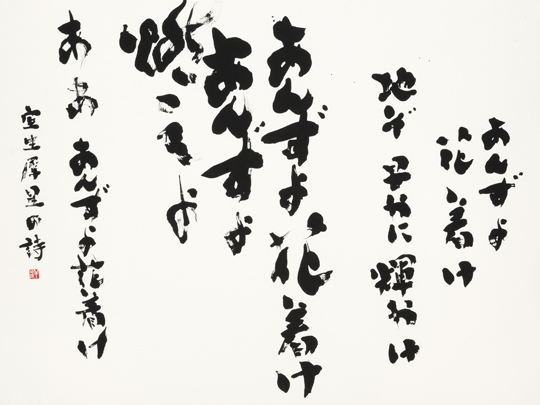 あんずよ
花着け
地ぞ早やに輝やけ
あんずよ花着け
あんずよ
燃えよ
ああ あんずよ花着け
室生犀星の詩